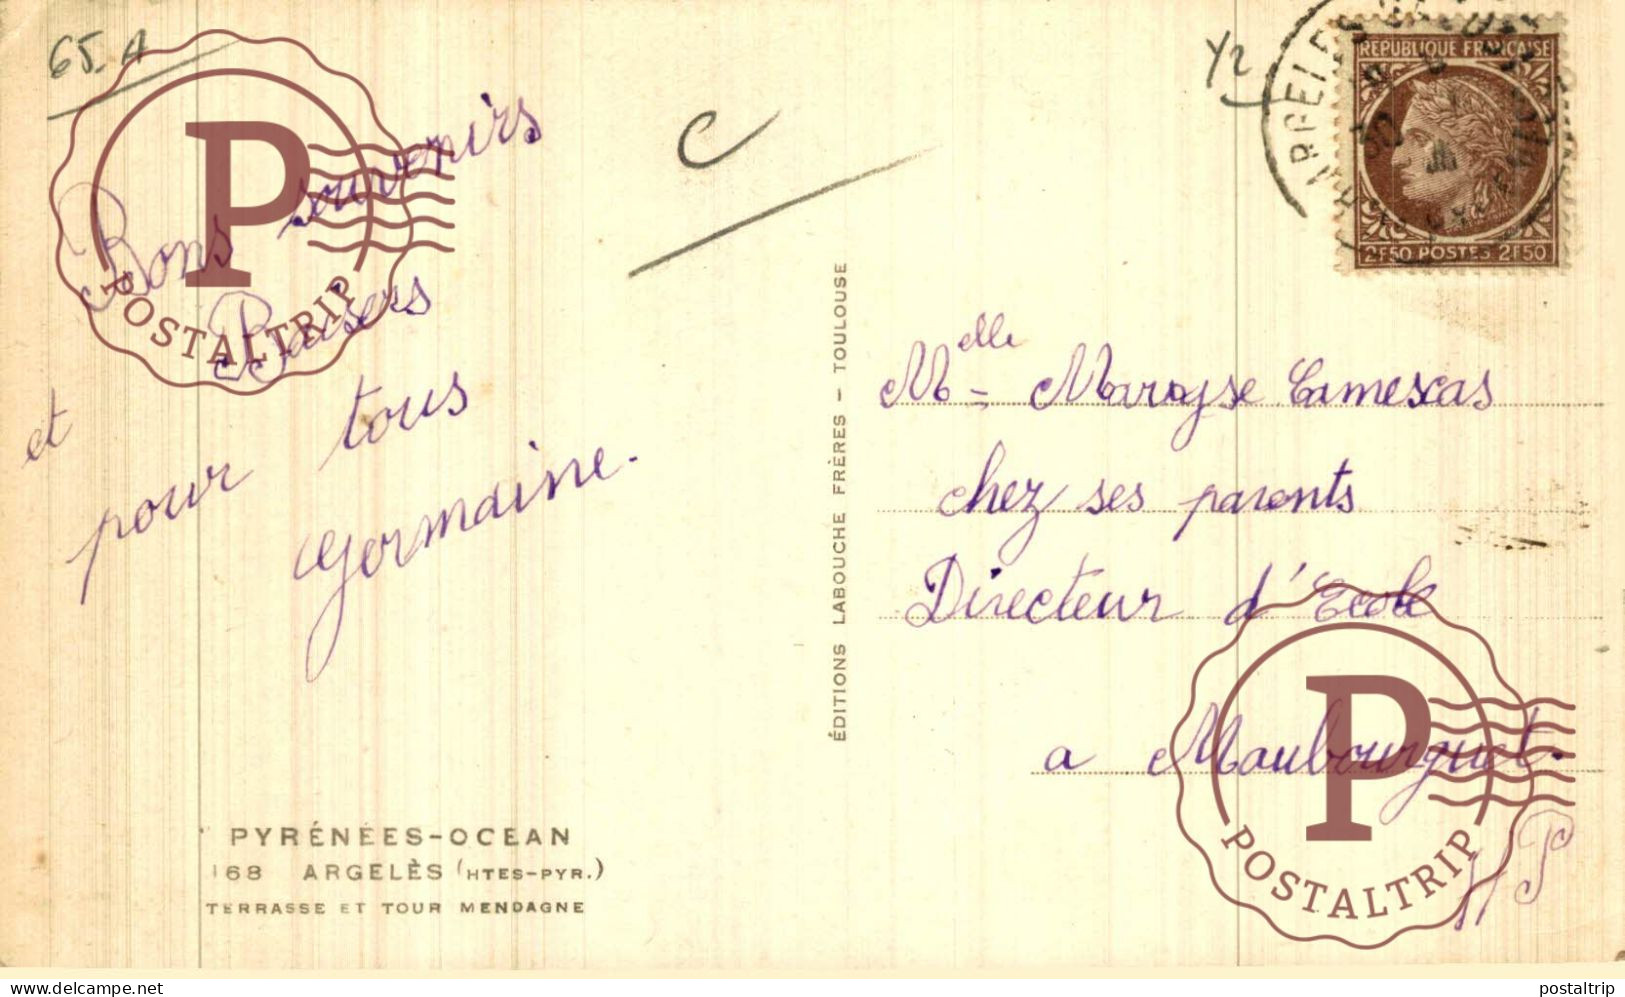 65. A
Bons souvenirs
et Baisers
pour tous
Germaine.
C
PYRÉNÉES-OCEAN
168 ARGELÈS (HTES-PYR.)
TERRASSE ET TOUR MENDAGNE
ÉDITIONS LABOUCHE FRÈRES - TOULOUSE
Y2
RÉPUBLIQUE FRANÇAISE
2F50 POSTES 2F50
Melle = Maryse Camescas
chez ses parents
Directeur d'Ecole
a Maubourguet.
HP
P
POSTALTRIP
P
POSTALTRIP
www.delcampe.net
postaltrip